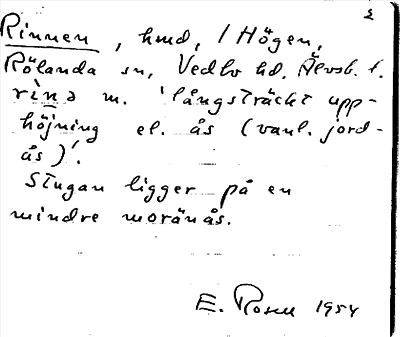 Rinnen, hmd, / Högen,
Rölanda sn, Vedbo hd. Älvsb. l.
rinə m. 'långsträckt upp-
höjning el. ås (vanl. jord-
ås)'.
Stugan ligger på en
mindre moränås.
E. Rosell 1954